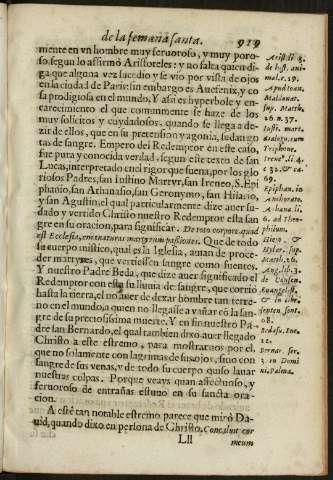 de la semana santa. 929
mente en vn hombre muy feruoroso, y muy poro-
so, segun lo affirmò Aristoteles: y no falta quien di-
ga que alguna vez sucedio y se vio por vista de ojos
en la ciudad de Paris: sin embargo es Auefenix, y co
sa prodigiosa en el mundo. Y assi es hyperbole y en-
carecimiento el que comunmente se haze de los
muy solicitos y cuydadosos, quando se llega a de-
zir de ellos, que en su pretension y agonia, sudan go
tas de sangre. Empero del Redemptor en este caso,
fue pura y conocida verdad, segun este texto de san
Lucas, interpretado en el rigor que suena, por los glo
riosos Padres, san Iustino Martyr, san Ireneo, S. Epi
phanio, san Athanasio, san Geronymo, san Hilario,
y san Agustin, el qual particularmente dize auer su-
dado y vertido Christo nuestro Redemptor esta san
gre en su oracion, para significar. De toto corpore quod
est Ecclesia, emanaturas martyrum passiones. Que de todo
su cuerpo mistico, qual es la Iglesia, auian de proce-
der martyres, que vertiessen sangre como fuentes.
Y nuestro Padre Beda, que dize auer significado el
Redemptor con esta su lluuia de sangre, que corriò
hasta la tierra, el no auer de dexar hombre tan terre-
no en el mundo, a quien no llegasse a vañar cõ la san-
gre de su preciosissima muerte. Y en fin nuestro Pa
dre san Bernardo, el qual tambien dixo auer llegado
Christo a este estremo, para mostrarnos por el,
que no solamente con lagrimas de sus ojos, sino con
sangre de sus venas, y de todo su cuerpo quiso lauar
nuestras culpas. Porque veays quan affectuoso, y
feruoroso de entrañas estuuo en su sancta ora-
cion.
A este tan notable estremo parece que mirò Da-
uid, quando dixo en persona de Christo, Concaluit cor
Lll meum
Aristil. 3.
de hist. ani
mal. c. 19.
Apud Ioan.
Maldonat.
sup. Matth.
26. n. 37.
Iusti. mart.
dialog. cum
Triphone.
Irene. li. 4.
c. 32. & ca.
69.
Epiphan. in
Anchorato.
Athana. li.
6. ad Theo-
philum.
Hiero. &
Hylar. sup.
Matth. 26.
Aug. lib. 3.
de Consen.
Euangelist.
& in libr.
sent. sent.
68.
Beda su. Luc.
22.
Bernar. ser.
3. in Domi
ni. Palma.